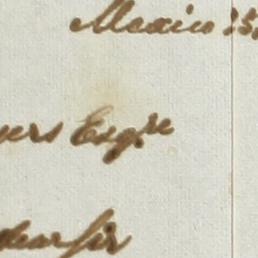 Mexico 15
vers Esqre
dear Sir